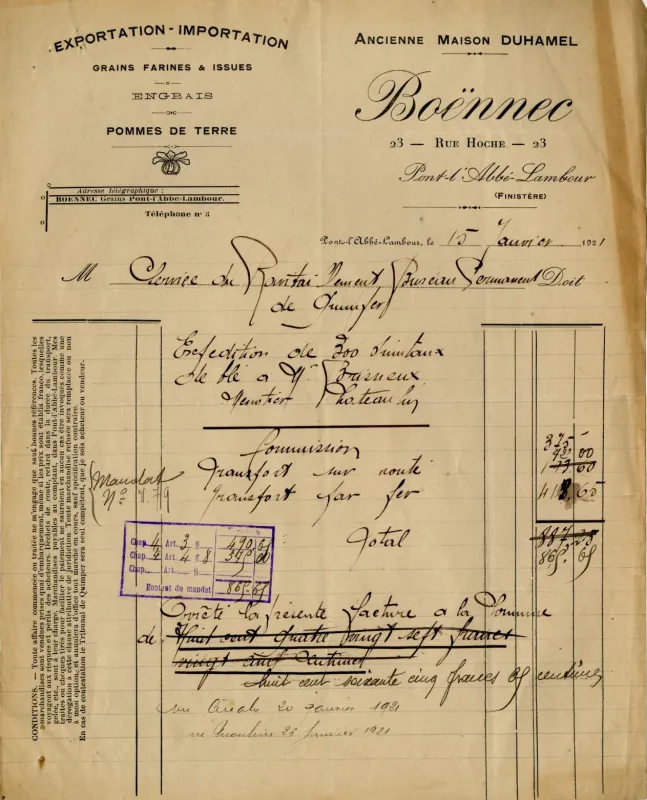 EXPORTATION - IMPORTATION
GRAINS FARINES & ISSUES
ENGRAIS
POMMES DE TERRE
Adresse télégraphique :
BOENNEC Grains Pont-l'Abbé-Lambour.
Téléphone n° 5
ANCIENNE MAISON DUHAMEL
Boënnec
23 — RUE HOCHE — 23
Pont-l'Abbé-Lambour
(FINISTÈRE)
Pont-l'Abbé-Lambour, le 15 Janvier 1921
M Service du Ravitaillement, Bureau Permanent Doit
de Quimper
Expédition de 300 Quintaux
de blé a Mr
Minotier Chateaulin
Commission 375 00
Transport sur route 60
Transport par fer 418,65
Total 887.25
865.65
Mandat
No
Chap. 4 Art. 3 § 490 65
Chap. 4 Art. 4 § 8 375 00
Chap. Art. §
Montant du mandat 865.65
Arrêté la présente facture a la Somme
de Huit cent quatre vingt sept francs
vingt cinq centimes
Huit cent soixante cinq francs 65 centimes
20 Janvier 1921
26 Janvier 1921
CONDITIONS. — Toute affaire commencée ou traitée ne m'engage que sauf bonnes références. Toutes les
marchandises sont vendues prises quai d'embarquement, même si les prix sont établis franco, lesquelles
voyagent aux risques et périls des acheteurs. Déchets de route, retard dans la durée du transport,
gelée, etc., étant à leur charge. Marchandises payables au comptant, dans Pont-l'Abbé-Lambour. Mes
traites ou chèques tirés pour faciliter le paiement ne sauraient en aucun cas être invoqués comme une
dérogation à cette clause attributive de juridiction. Toute marchandise refusée sera remplacée ou non
à mon option, et annulera d'office tout marché en cours, sans spécification contraire.
En cas de contestation le Tribunal de Quimper sera seul compétent, que je sois acheteur ou vendeur.